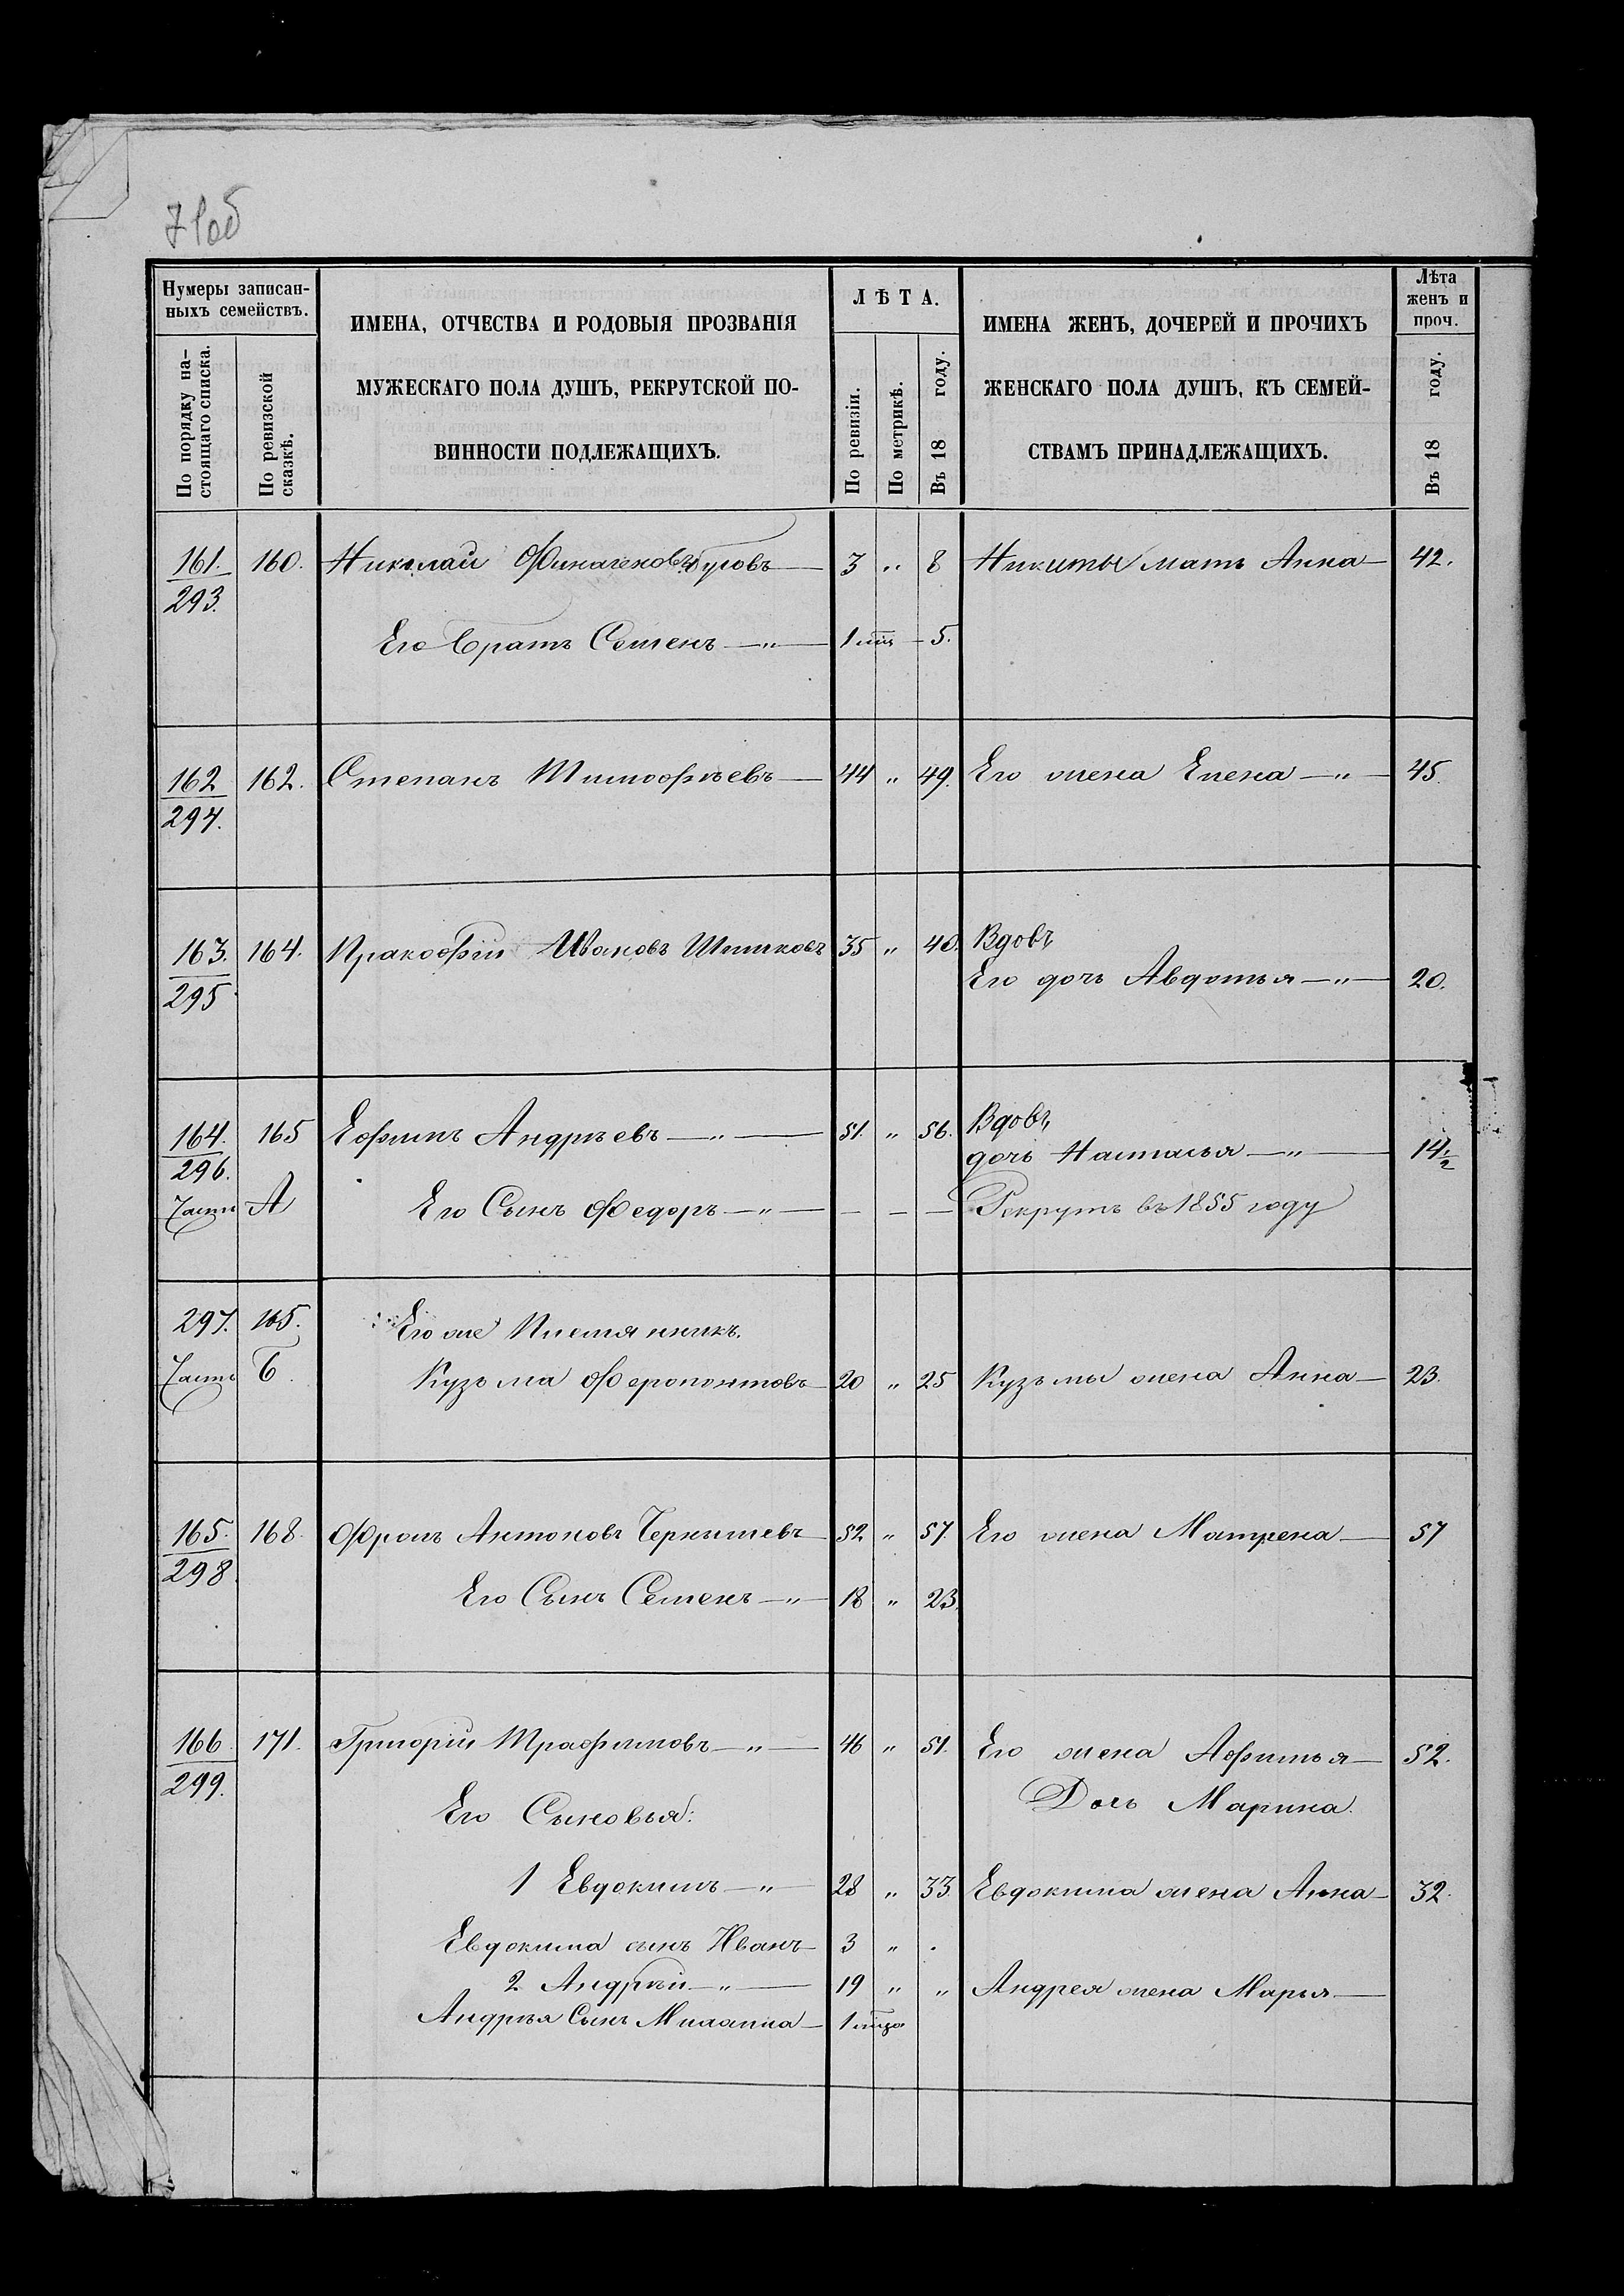 71об
Нумеры записан-
ныхъ семействъ.
По порядку на-
стоящаго списка.
По ревизской
сказкѣ.
ИМЕНА, ОТЧЕСТВА И РОДОВЫЯ ПРОЗВАНІЯ
МУЖЕСКАГО ПОЛА ДУШЪ, РЕКРУТСКОЙ ПО-
ВИННОСТИ ПОДЛЕЖАЩИХЪ.
ЛѢТА.
По ревизіи.
По метрикѣ.
Въ 18 году.
ИМЕНА ЖЕНЪ, ДОЧЕРЕЙ И ПРОЧИХЪ
ЖЕНСКАГО ПОЛА ДУШЪ, КЪ СЕМЕЙ-
СТВАМЪ ПРИНАДЛЕЖАЩИХЪ.
Лѣта
женъ и
проч.
Въ 18 году.
161. 160. Николай 3 „ 8 Никиты мать Анна — 42.
293.
Его братъ Семенъ —„— 1 — 5.
162 162. Степанъ Тимофѣевъ — 44 „ 49. Его жена Елена —„— 45.
294.
163. 164. Пракофiй Ивановъ Шишковъ 35 „ 40. Вдовъ
295 Его дочь Авдотья —„— 20.
164. 165 Ефимъ Андрѣевъ —„— 51. „ 56. Вдовъ
296. дочь Настасья —„— 14 1/2
Часть А Его Сынъ Федоръ —„— — — — Рекрутъ въ 1855 году
297. 165. Его же Племянникъ.
Часть Б. Кузьма Ферапонтовъ — 20 „ 25 Кузьмы жена Анна — 23.
165. 168. Фролъ Антоновъ Чернышевъ — 52 „ 57. Его жена Матрена — 57
298.
Его Сынъ Семенъ —„— 18 „ 23.
166. 171. Григорiй Трафимовъ —„— 46 „ 51. Его жена Афимья — 52.
299.
Его Сыновья: Дочь Марина.
1 Евдокимъ —„— 28 „ 33. Евдокима жена Анна — 32.
Евдокима сынъ Иванъ — 3 „ .
2. Андрѣй —„— 19 „ „ Андрея жена Марья —
Андрѣя Сынъ — 1